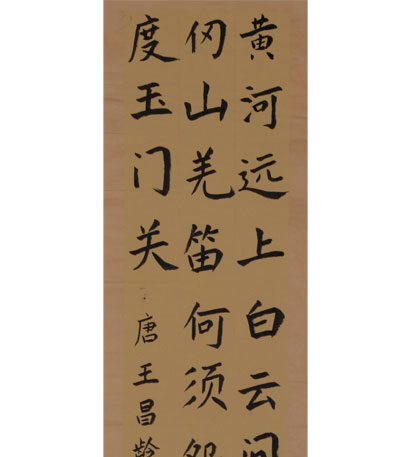 黄河远上白云间
仞山羌笛何须怨
度玉门关
唐王昌龄